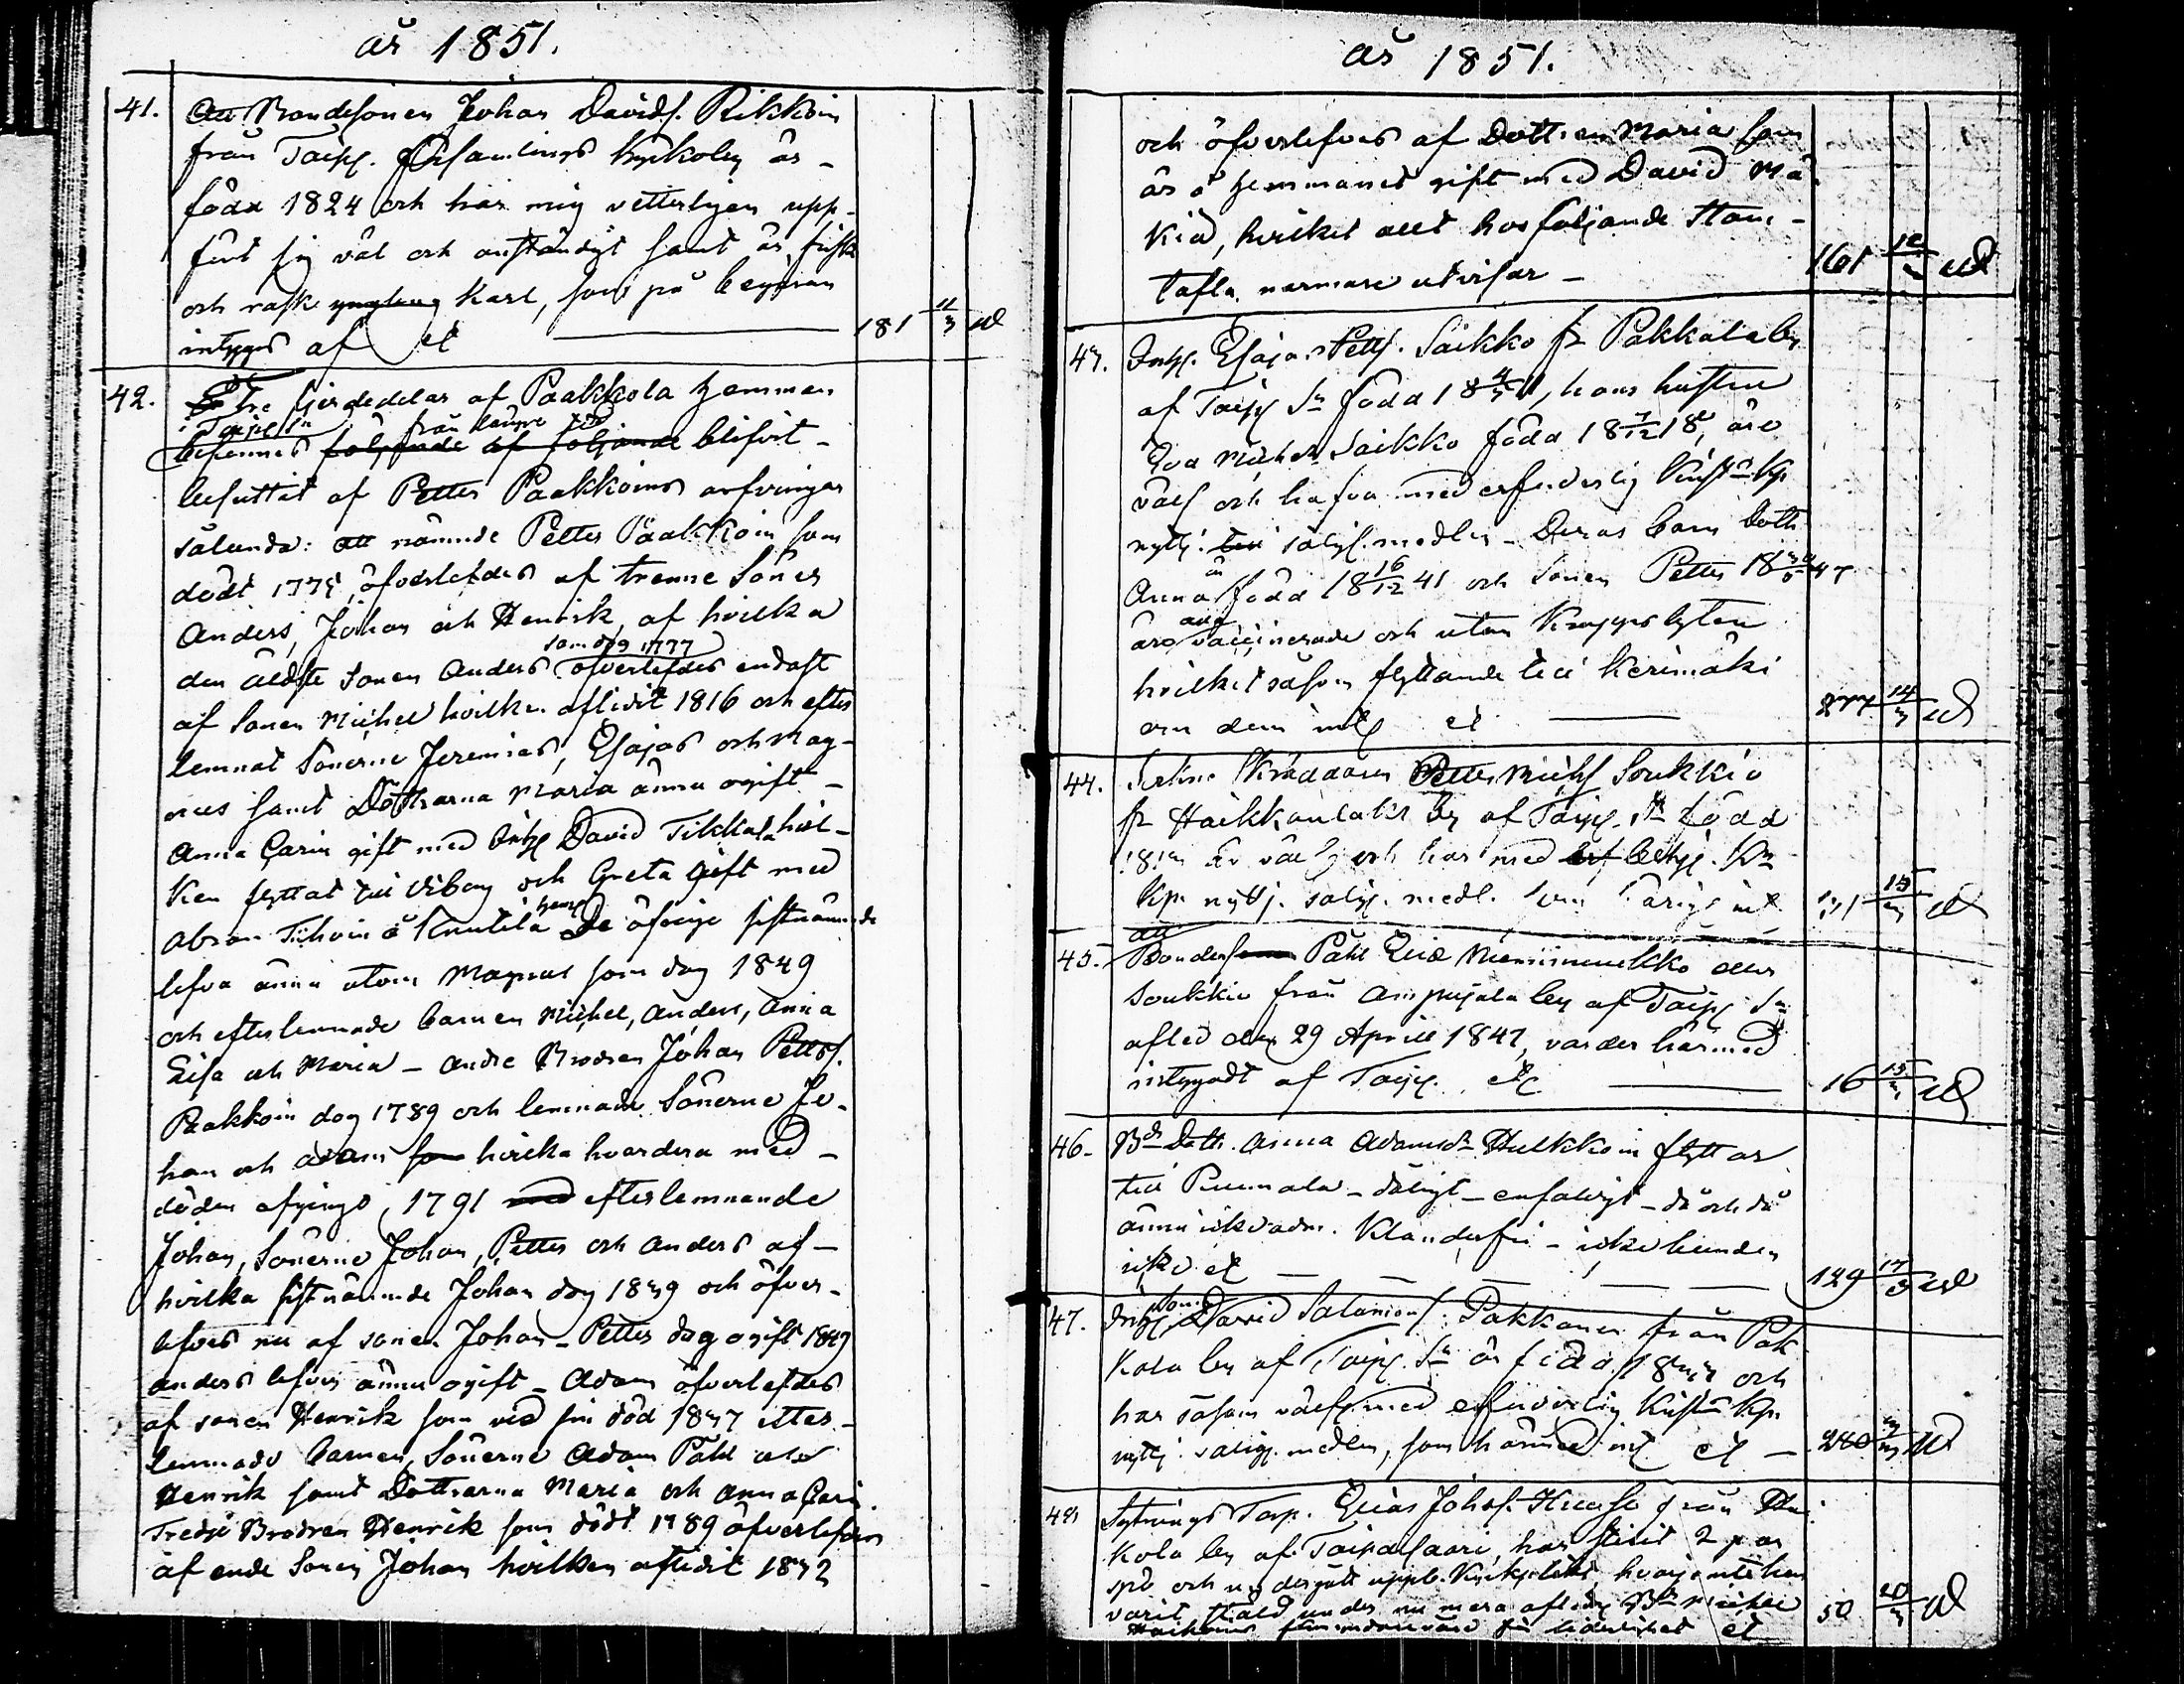 år 1851.
41. Att Bondesonen Johan Davids. Rikkoin
från Taip. Församlings Kyrkoby är
född 1824 och har mig vetterligen upp-
fört sig väl och anständigt samt är frisk
och rask yngling Karl, som på begäran
intygas af et 181 11/3 ut
42. Tre fjerdedelar af Paakkola Hemman
i Taipl. Sn från länge tid
befinnes följande af följande blifvit
besuttit af Petter Paakkoins arfvingar
sålunda: att nämnde Petter Paakkoin som
dödt 1775, öfverlefdes af trenne Söner
Anders, Johan och Henrik, af hvilka
som dog 1777
den äldste Sonen Anders öfverlefdes endast
af Sonen Michel hvilken aflidit 1816 och efter
lemnat Sönerne Jeremias, Esajas och Mag-
nus samt Döttrarna Maria ännu ogift
Anna Carin gift med Inhs David Tikkala hvil-
ken flyttat till Viborg och Greta gift med
Abram Tiihoin å Knutila hem De öfrige sistnämnde
lefva ännu utom Magnus som dog 1849
och efterlemnade barnen Michel, Anders, Anna
Lisa och Maria - Andre Brodren Johan Petters.
Paakkoin dog 1789 och lemnade Sönerne Jo-
han och Adam som hvilka hvardera med
döden afgingo, 1791 med efterlemnande
Johan, Sönerne Johan, Petter och Anders af
hvilka sistnämnde Johan dog 1839 och öfver-
lefves nu af sonen Johan - Petter dog ogift 1849
Anders lefver ännu ogift - Adam öfverlefdes
af sonen Henrik som vid sin död 1837 efter-
lemnade barnen, Sönerne Adam Påhl och
Henrik samt Döttrarna Maria och Anna Carin.
Tredje Brodren Henrik som dödt 1789 öfverlefdes
af ende Sonen Johan hvilken aflidit 1832
år 1851.
och öfverlefves af Dottren Maria som
är å Hemmanet gift med David Mä-
kiä, hvilket allt hosföljande Stam-
tafla närmare utvisar - 161 12/3 ut
43. Inhs. Esajas Petts. Saikko fr Pakkala by
af Taip Sn född 18 4/3 11, hans hustru
Eva Michelsdr Saikko född 18 7/12 18, äro
väls och hafva med erforderlig Kristds Kp
nyttj. till salighs. medlen - Deras barn Dottr
Anna är född 18 16/12 41 och Sonen Petter 18 47
äro vaccinerade och utan Kroppslyten
hvilket såsom flyttande till Kerimäki
om dem int et 277 14/3 ut
44. Skräddaren Petter Michls Soukkio
fr Haikkanlaks by af Taip. Sn född
181 är väls och har med erf behgl. Kr
Kp. nyttj. saligs. medl. 131 15/3 ut
45. att Bondesonen Påhl Ericss Niemiinenukko eller
Soukkio från Ampujala by af Taip Sn
afled den 29 April 1847, varder härmed
intygadt af Taip. etc 16 15/3 ut
46. Bds Dottr. Anna Adamsdr Hulkkoin flyttar
till Puumala - dåligt - enfaldigt - då och då
ännu nattvardn. Klanderfri - icke bunden
icke et 129 17/3 ut
47. Inhs Son. David Salomons. Pakkanen från Pak
kola by af Taip. Sn är född 18 och
har såsom väls med erforderlig Kristds Kp.
nyttj. saligs. medlen, som härmed int et - 280 ut
48 Sytnings Torp. Elias Johss. Kuusso från
kola by af Taipalsaari, har slitit 2 par
spö och undergått uppb. Kyrkoplikt, hvarjemte han
varit ställd under nu mera aflidne
för liderlighet et 50 20/3 ut